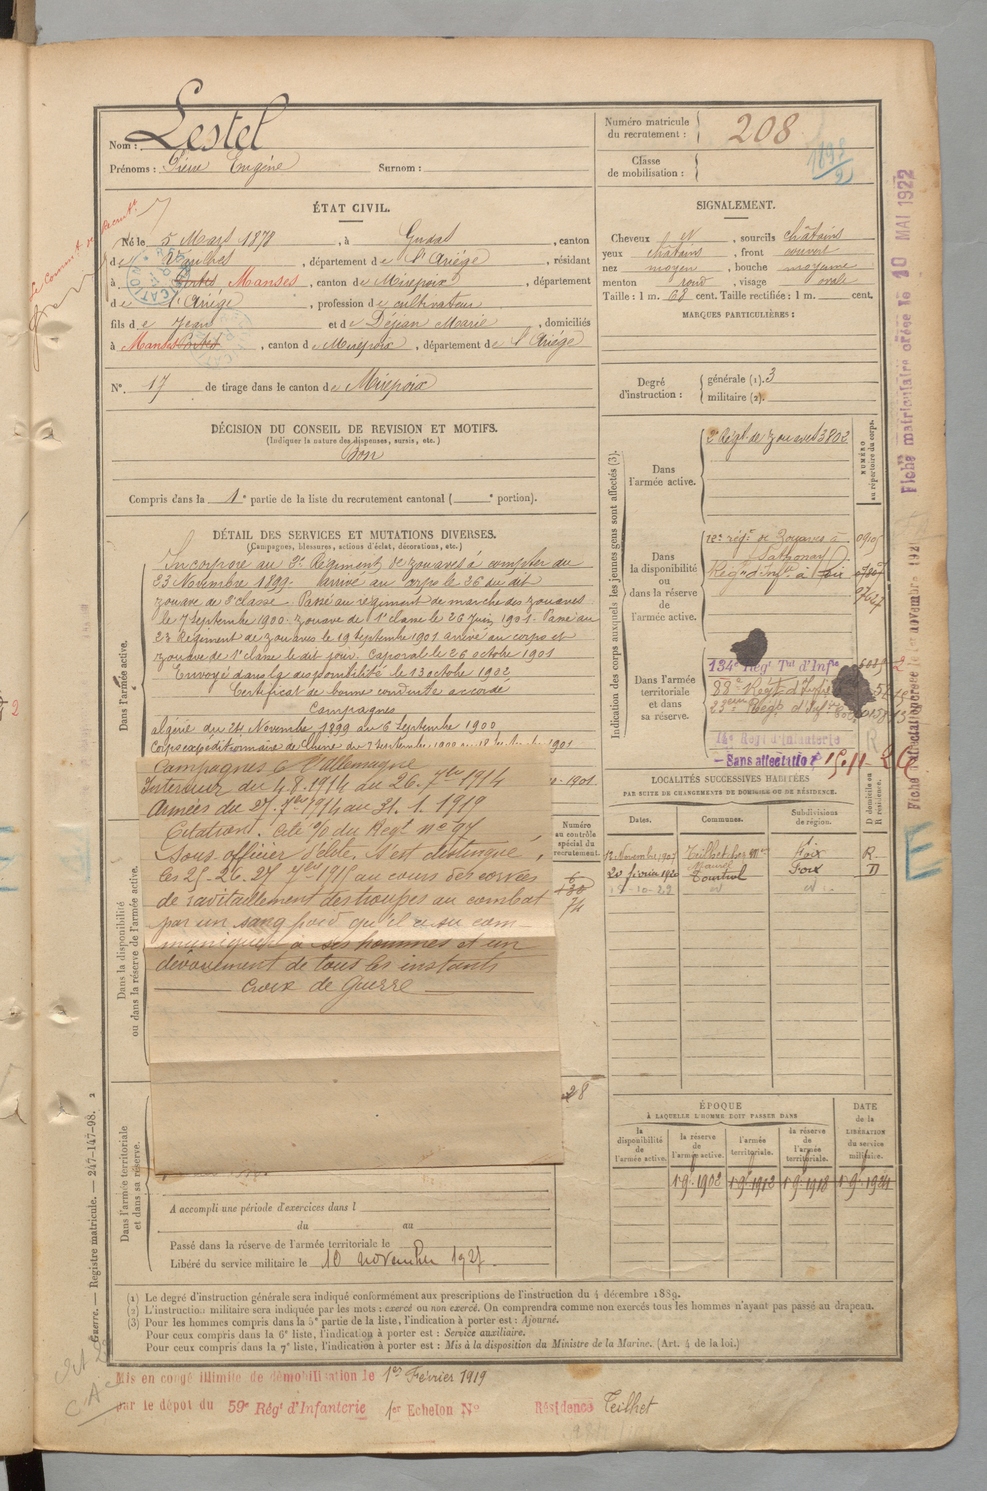 Nom : Lestel
Prénoms : Pierre Eugène Surnom :
Numéro matricule
du recrutement : 208
Classe
de mobilisation :
ÉTAT CIVIL.
Né le 5 Mars 1878, à Gudas, canton
de Varilhes, département de l'Ariège, résidant
à Portes Manses, canton de Mirepoix, département
de l'Ariège, profession de cultivateur
fils de Jean et de Déjean Marie, domiciliés
à Manses, canton de Mirepoix, département de l'Ariège
N° 17 de tirage dans le canton de Mirepoix
SIGNALEMENT.
Cheveux, sourcils châtains
yeux châtains, front couvert
nez moyen, bouche moyenne
menton rond, visage ovale
Taille : 1 m. 68 cent. Taille rectifiée : 1 m. cent.
MARQUES PARTICULIÈRES :
Degré
d'instruction :
générale (1). 3
militaire (2).
DÉCISION DU CONSEIL DE REVISION ET MOTIFS.
(Indiquer la nature des dispenses, sursis, etc.)
Bon
Compris dans la 1e partie de la liste du recrutement cantonal ( e portion).
DÉTAIL DES SERVICES ET MUTATIONS DIVERSES.
(Campagnes, blessures, actions d'éclat, décorations, etc.)
Dans l'armée active.
Incorporé au 2e Régiment de zouaves à compter du
23 Novembre 1899. Arrivé au corps le 26 du dit
zouave de 2e classe. Passé au régiment de marche des zouaves
le 7 septembre 1900. zouave de 1e classe le 26 Juin 1901. Passé au
2e Régiment de zouaves le 19 septembre 1901 arrivé au corps et
zouave de 1e classe le dit jour. Caporal le 26 octobre 1901
Envoyé dans la disponibilité le 13 octobre 1902
Certificat de bonne conduite accordé
Campagnes
algérie du 24 Novembre 1899 au 6 Septembre 1900
Corps expéditionnaire de Chine du 7 Septembre 1900 au 18 1901
Campagnes c/ l'allemagne
Intérieur du 4.8.1914 au 26. 7bre 1914
Armées du 27. 7bre 1914 au 31. 1. 1919
Citation. Cité % du Regt no 97
Sous-officier d'élite. S'est distingué,
les 25-26-27 7bre 1915 au cours des corvées
de ravitaillement des troupes au combat
par un sang froid qu'il a su com-
muniquer à ses hommes et un
dévouement de tous les instants
Croix de Guerre
Dans la disponibilité
ou dans la réserve de l'armée active.
Dans l'armée territoriale
et dans sa réserve.
Numéro
au contrôle
spécial du
recrutement.
74
28
A accompli une période d'exercices dans l
du au
Passé dans la réserve de l'armée territoriale le
Libéré du service militaire le 10 novembre 1927.
Indication des corps auxquels les jeunes gens sont affectés (3).
NUMÉRO
au répertoire du corps.
Dans
l'armée active.
2e Régt de zouaves 3802
Dans
la disponibilité
ou
dans la réserve
de
l'armée active.
Régt d'Infie à Foix
Dans l'armée
territoriale
et dans
sa réserve.
134e Régt Tal d'Infie
88e Régt d'Infie
23ème Régt d'Inf
14e Régt d'Infanterie
Sans affectation
LOCALITÉS SUCCESSIVES HABITÉES
PAR SUITE DE CHANGEMENTS DE DOMICILE OU DE RÉSIDENCE.
Dates. Communes. Subdivisions
de région. D domicile ou
R résidence.
12 Novembre 1907 Teilhet Foix R
20 février 1920 Tourtrol Foix D
10-22
ÉPOQUE
À LAQUELLE L'HOMME DOIT PASSER DANS
la
disponibilité
de
l'armée active.
la réserve
de
l'armée active.
l'armée
territoriale.
la réserve
de
l'armée
territoriale.
DATE
de la
LIBÉRATION
du service
militaire.
1.9.1902 1.9.1912 1.9.1918 1.9.1924
(1) Le degré d'instruction générale sera indiqué conformément aux prescriptions de l'instruction du 4 décembre 1889.
(2) L'instruction militaire sera indiquée par les mots : exercé ou non exercé. On comprendra comme non exercés tous les hommes n'ayant pas passé au drapeau.
(3) Pour les hommes compris dans la 5e partie de la liste, l'indication à porter est : Ajourné.
Pour ceux compris dans la 6e liste, l'indication à porter est : Service auxiliaire.
Pour ceux compris dans la 7e liste, l'indication à porter est : Mis à la disposition du Ministre de la Marine. (Art. 4 de la loi.)
Mis en congé illimité de démobilisation le 1er Février 1919
par le dépôt du 59e Régt d'Infanterie 1er Echelon No Résidence Teilhet
Guerre. — Registre matricule. — 247-147-98. 2
Fiche matriculaire créée le 10 MAI 1922
E